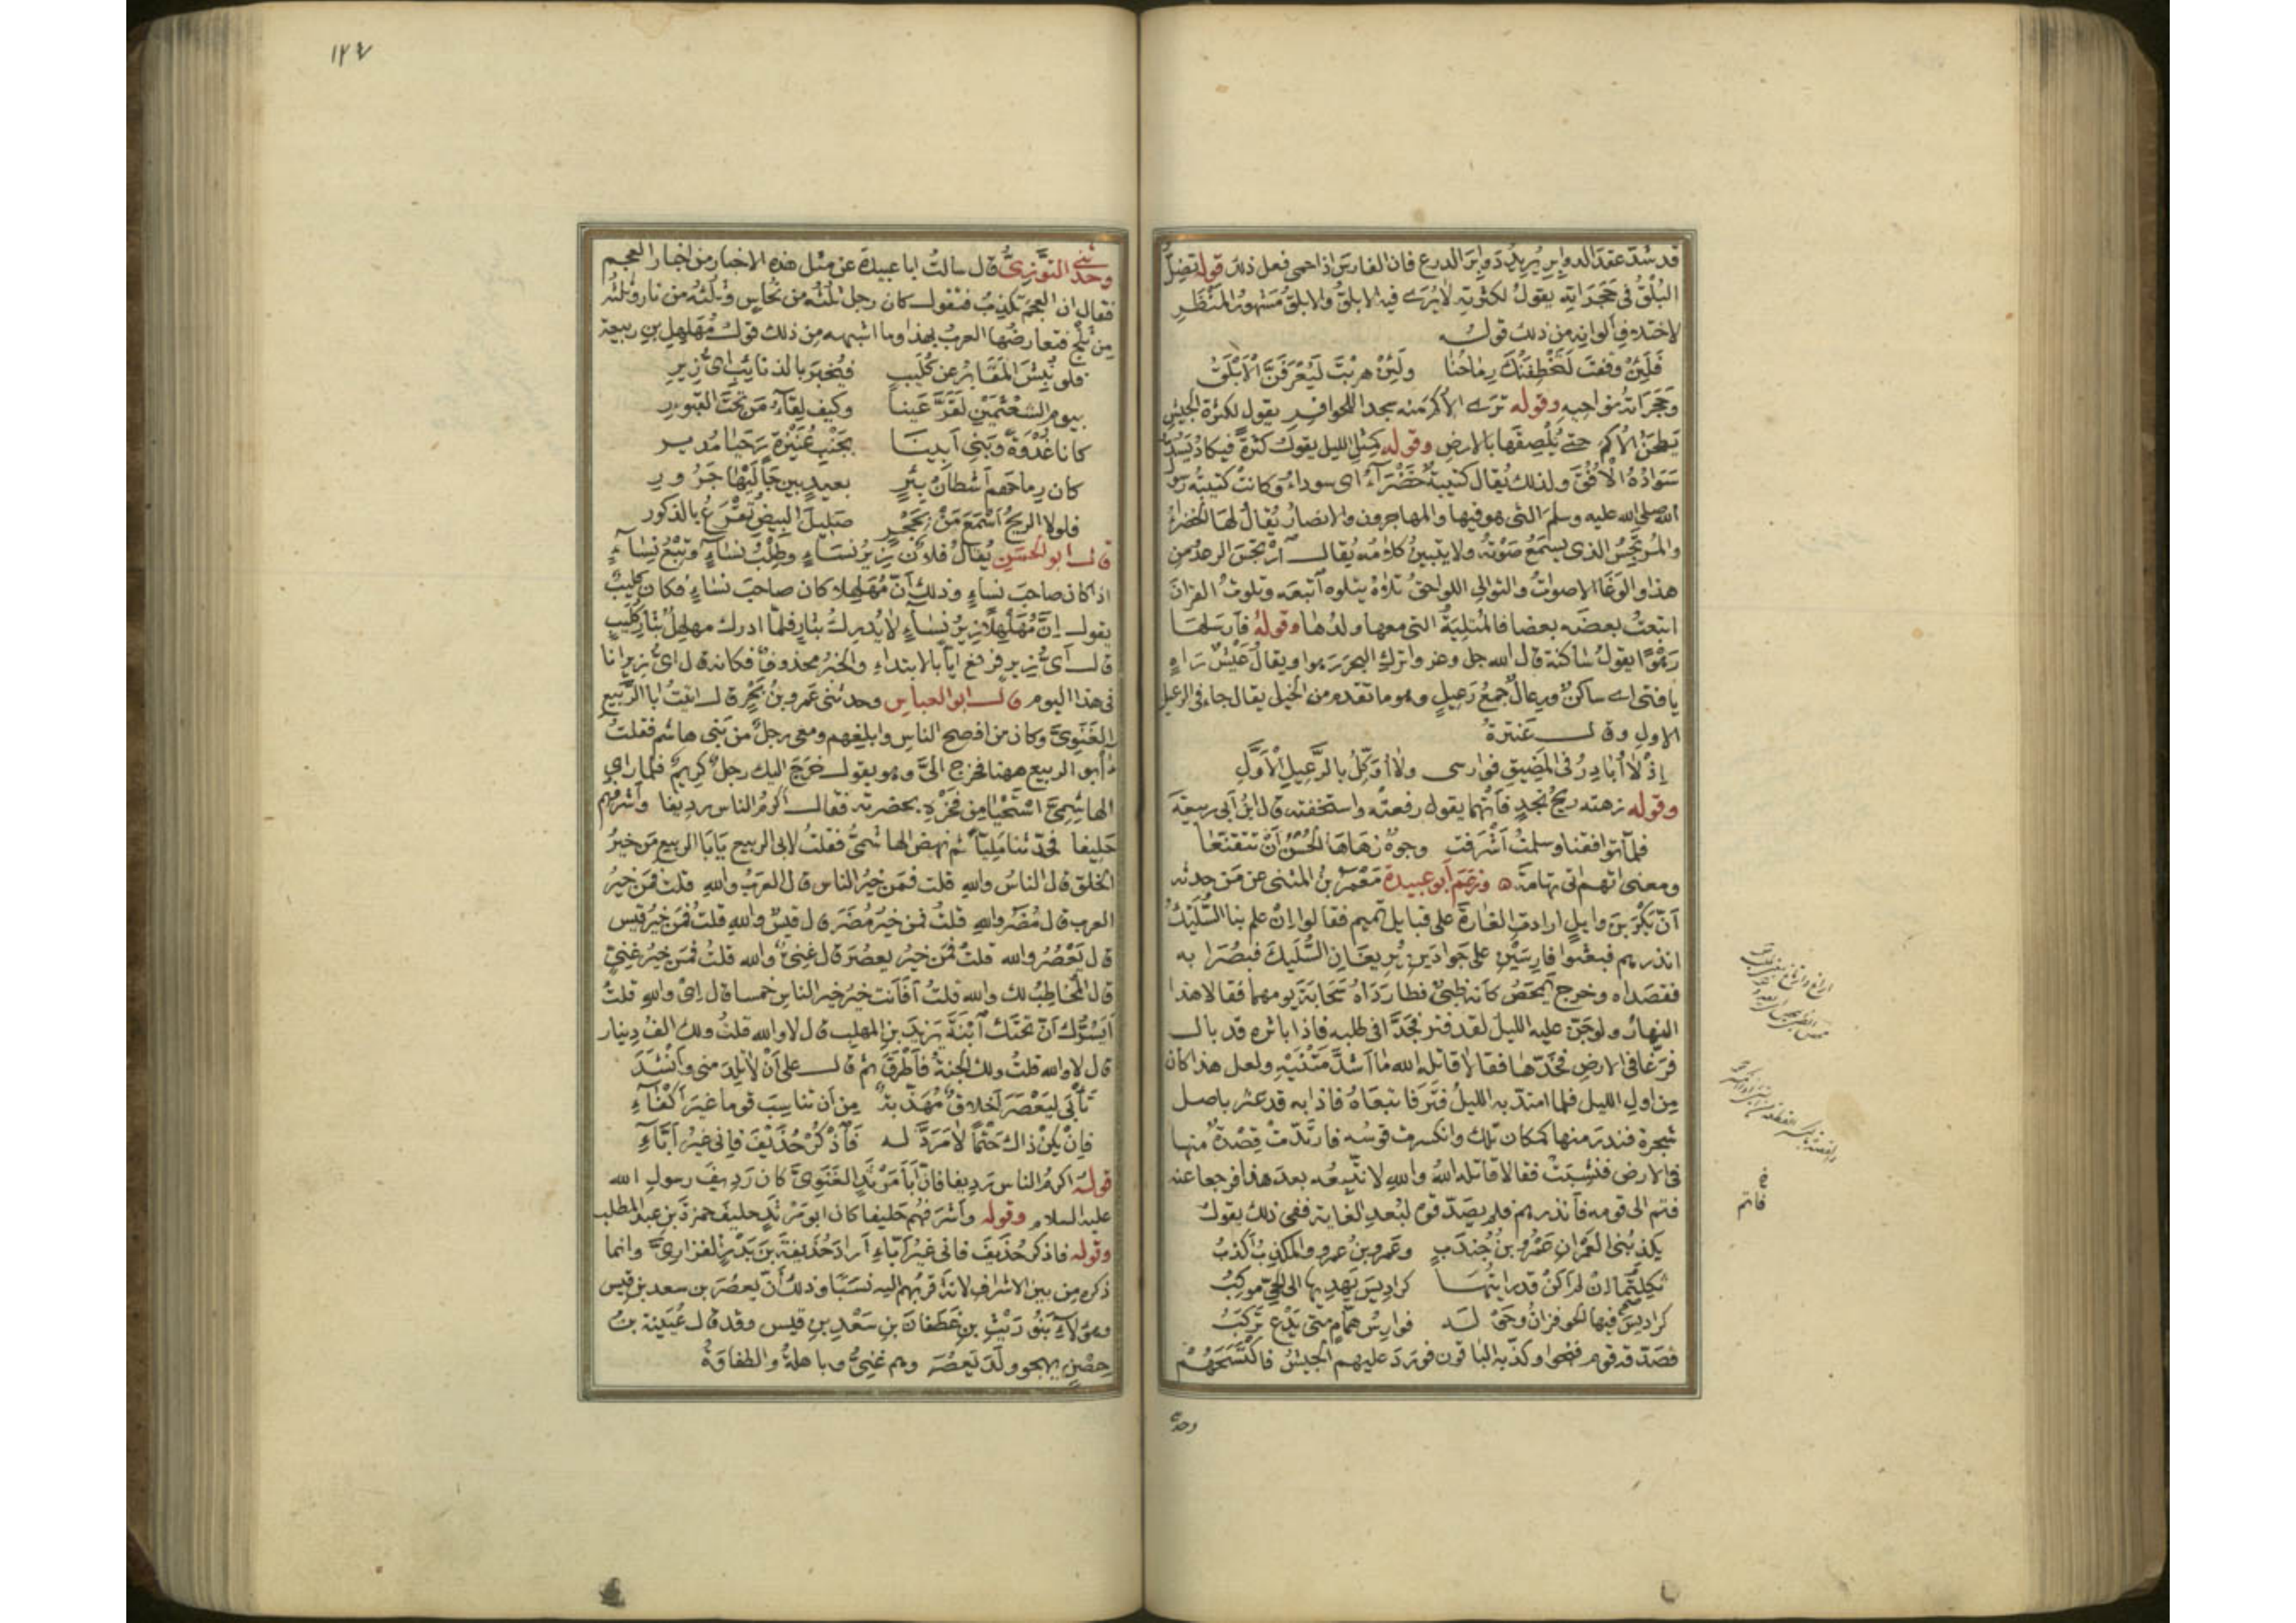 قد شدّ عقد الدوابر يريد دوابر الدرع فان الفارس اذا حمى فعل ذلك قوله تضلّ
البلق فى حجراته يقول لكثرته لا يرى فيه الابلق والابلق مشهور المنظر
لاختلاف الوانه من ذلك قوله
فلئن وقفت لتخطفنك رماحنا ولئن هربت ليعرفن الابلق
وحجراته نواحيه وقوله ترى الاكم منه سجدا للحوافر يقول لكثرة الجيش
يطحن الاكم حتى يلصقها بالارض وقوله كمثل الليل يقول كثرة فيكاد يسد
سواده الافق ولذلك يقال كتيبة خضراء اى سوداء وكانت كتيبة رسول
الله صلى الله عليه وسلم التى هو فيها والمهاجرون والانصار يقال لها الخضراء
والمرتجس الذى يسمع صوته ولا يتبين كلامه يقال ارتجس الرعد من
هذا والوغا الاصوات والتوالى اللواحق تلاه يتلوه اتبعه وتلوت القران
اتبعت بعضه بعضا فالمتلية التى معها ولدها وقوله فارسلها
رهوا يقول ساكنة قال الله جل وعز واترك البحر رهوا ويقال عيش راه
يا فتى اى ساكن ورعال جمع رعيل وهو ما تقدم من الخيل يقال جاء فى الرعيل
الاول وقال عنترة
اذ لا ابادر فى المضيق فوارسى ولا اوكل بالرعيل الاول
وقوله زهته ريح نجد فانما يقول رفعته واستخفته قال ابن ابى ربيعة
فلما تواقفنا وسلمت اشرقت وجوه زهاها الحسن ان تتقنعا
ومعنى اتهم اتى تهامة وزعم ابو عبيدة معمر بن المثنى عن من حدثه
ان بكر بن وايل ارادت الغارة على قبايل تميم فقالوا ان علم بنا السليك
انذرهم فبعثوا فارسين على جوادين يريغان السليك فبصرا به
فقصداه وخرج يمحص كانه ظبى فطارداه سحابة يومهما فقالا هذا
النهار ولو جن عليه الليل لقد فتر فجدا فى طلبه فاذا باثره قد بال
فرغا فى الارض فخدّها فقالا قاتله الله ما اشد متنيه ولعل هذا كان
من اول الليل فلما امتد به الليل فتر فاتبعاه فاذا به قد عثر باصل
شجرة فندر منها كمكان تلك وانكسرت قوسه فارتدت قصدة منها
فى الارض فنشبت فقالا قاتله الله والله لا نتبعه بعد هذا فرجعا عنه
فتم الى قومه فانذرهم فلم يصدقوه لبعد الغاية ففى ذلك يقول
يكذبنى العمران عمرو بن جندب وعمرو بن عمرو والمكذب اكذب
ثكلتكما ان لم اكن قد رايتها كراديس يهديها الى الحى موكب
كراديس فيها الحوفزان وحوله فوارس همام متى يدع تركب
فصدقه قوم فنجوا وكذبه الباقون فورد عليهم الجيش فاكتسحهم
فاتم
وحدثنى
١٢٤
وحدثنى التوزى قال سالت ابا عبيدة عن مثل هذه الاخبار من اخبار العجم
فقال ان العجم تكذب فتقول كان رجل ثلثه من نحاس وثلثه من نار وثلثه
من ثلج فتعارضها العرب بهذا وما اشبهه من ذلك قول مهلهل بن ربيعة
فلو نبش المقابر عن كليب فيخبر بالذنايب اى زير
بيوم الشعثمين لقر عينا وكيف لقاء من تحت القبور
كانا غدوة وبنى ابينا بجنب عنيزة رحيا مدير
كان رماحهم اشطان بئر بعيد بين جاليها جرور
فلولا الريح اسمع من بحجر صليل البيض تقرع بالذكور
قال ابو الحسن يقال فلان زير نساء وطلب نساء وتبع نساء
اذا كان صاحب نساء وذلك ان مهلهلا كان صاحب نساء فكان كليب
يقول ان مهلهلا زير نساء لا يدرك بثار فلما ادرك مهلهل بثار كليب
قال اى زير فرفع ايا بالابتداء والخبر محذوف فكانه قال اى زير انا
فى هذا اليوم قال ابو العباس وحدثنى عمرو بن بحر قال اتيت ابا الربيع
الغنوى وكان من افصح الناس وابلغهم ومعى رجل من بنى هاشم فقلت
أأبو الربيع ههنا فخرج الىّ وهو يقول خرج اليك رجل كريم فلما راى
الهاشمى استحيا من فخره بحضرته فقال اكرم الناس رديفا واشرفهم
حليفا فحدثنا مليا ثم نهض الهاشمى فقلت لابى الربيع يابا الربيع من خير
الخلق قال الناس والله قلت فمن خير الناس قال العرب والله قلت فمن خير
العرب قال مضر والله قلت فمن خير مضر قال قيس والله قلت فمن خير قيس
قال يعصر والله قلت فمن خير يعصر قال غنى والله قلت فمن خير غنى
قال المخاطب لك والله قلت أفأنت خير خير الناس خمسا قال اى والله قلت
ايسرك ان تحتك ابنة يزيد بن المهلب قال لا والله قلت ولك الف دينار
قال لا والله قلت ولك الجنة فاطرق ثم قال على ان لا تلد منى وانشد
تابى ليعصر اخلاق مهذبة من ان تناسب قوما غير اكفاء
فان يكن ذاك حتما لا مرد له فاذكر حذيف فانى غير اباء
قوله اكرم الناس رديفا فان ابا مرثد الغنوى كان رديف رسول الله
عليه السلام وقوله واشرفهم حليفا كان ابو مرثد حليف حمزة بن عبد المطلب
وقوله فاذكر حذيف فانى غير اباء اراد حذيفة بن بدر الفزارى وانما
ذكره من بين الاشراف لانه اقربهم اليه نسبا وذلك ان يعصر بن سعد بن قيس
وهؤلاء بنو ريث بن غطفان بن سعد بن قيس وقد قال عيينة بن
حصن يهجو ولد يعصر وهم غنى وباهلة والطفاوة